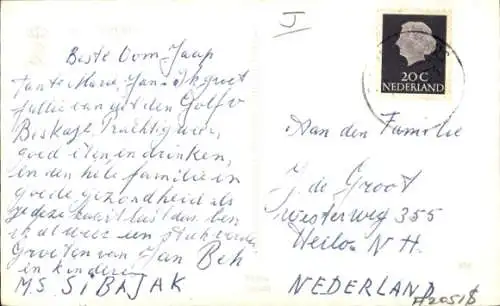 J
Beste Oom Jaap
Tante Marie, Jan. Ik groet
jullie van uit den Golf v
Biskaje. Prachtig weer,
goed eten en drinken,
en den hele familie in
goede gezondheid als
je deze kaart leest dan ben
ik al weer een stuk verder
Groeten van Jan Beh
en kinderen
M.S. SIBAJAK
20 C
NEDERLAND
Aan den Familie
J. de Groot
Westerweg 355
Heiloo N H.
NEDERLAND